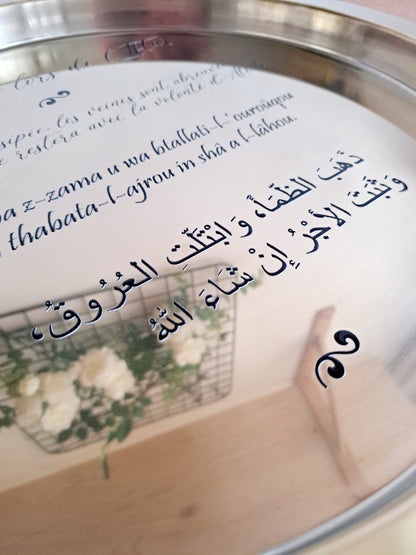 lors de l'Ifta
sipée, les veines sont abreuv
restera avec la volonté d'A
z-zama u wa btallati-l-'ourouqou
thabata-l-ajrou in shâ a l-lâhou.
ذَهَبَ الظَّمَأُ، وَ ابْتَلَّتِ العُرُوقُ،
وَ ثَبَتَ الأَجْرُ إِنْ شَاءَ اللَّهُ